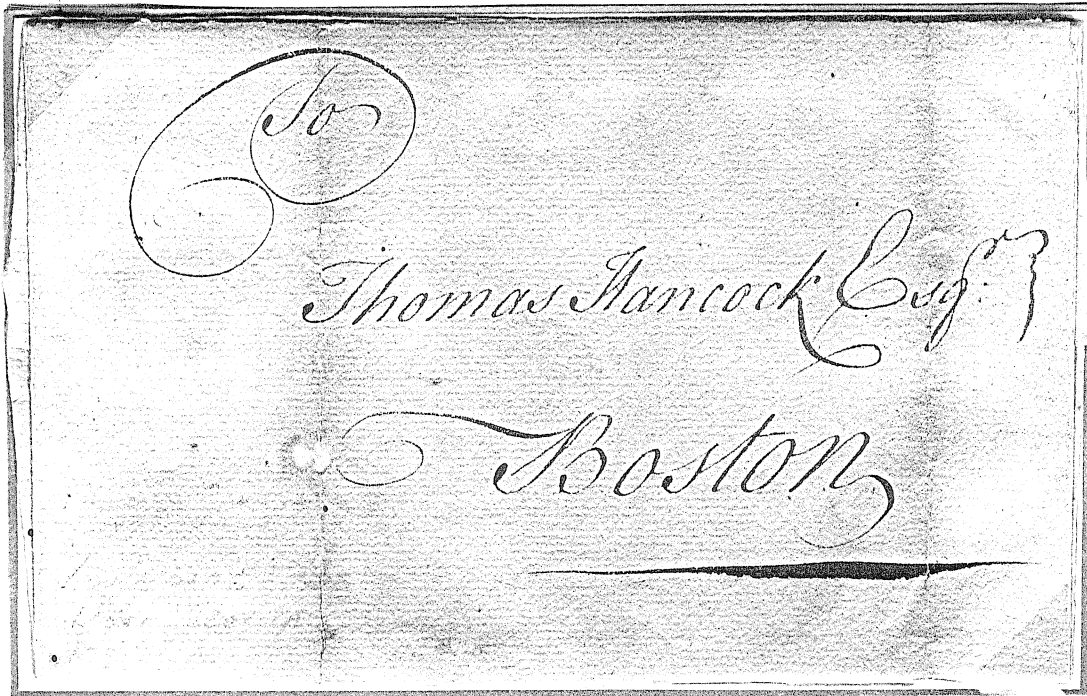 To
Thomas Hancock Esqr.
Boston